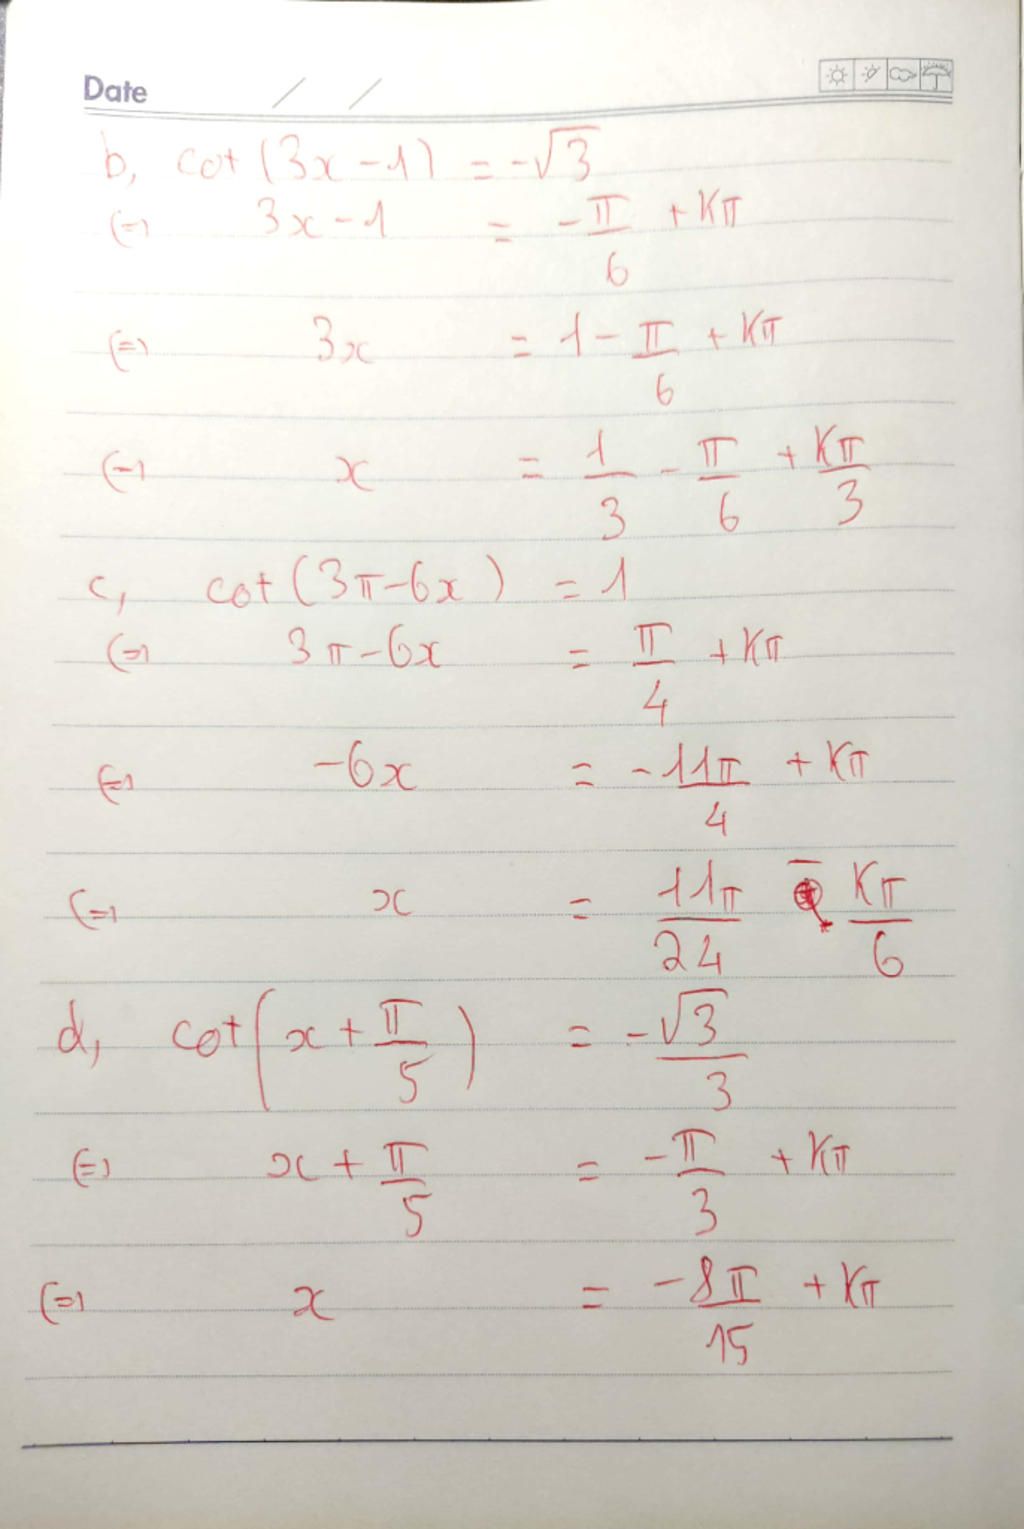 Date / /
b, cot (3x - 1) = -√3
(=) 3x - 1 = -π/6 + Kπ
(=) 3x = 1 - π/6 + Kπ
(=) x = 1/3 - π/6 + Kπ/3
c, cot (3π - 6x) = 1
(=) 3π - 6x = π/4 + Kπ
(=) -6x = -11π/4 + Kπ
(=) x = 11π/24 - Kπ/6
d, cot (x + π/5) = -√3/3
(=) x + π/5 = -π/3 + Kπ
(=) x = -8π/15 + Kπ